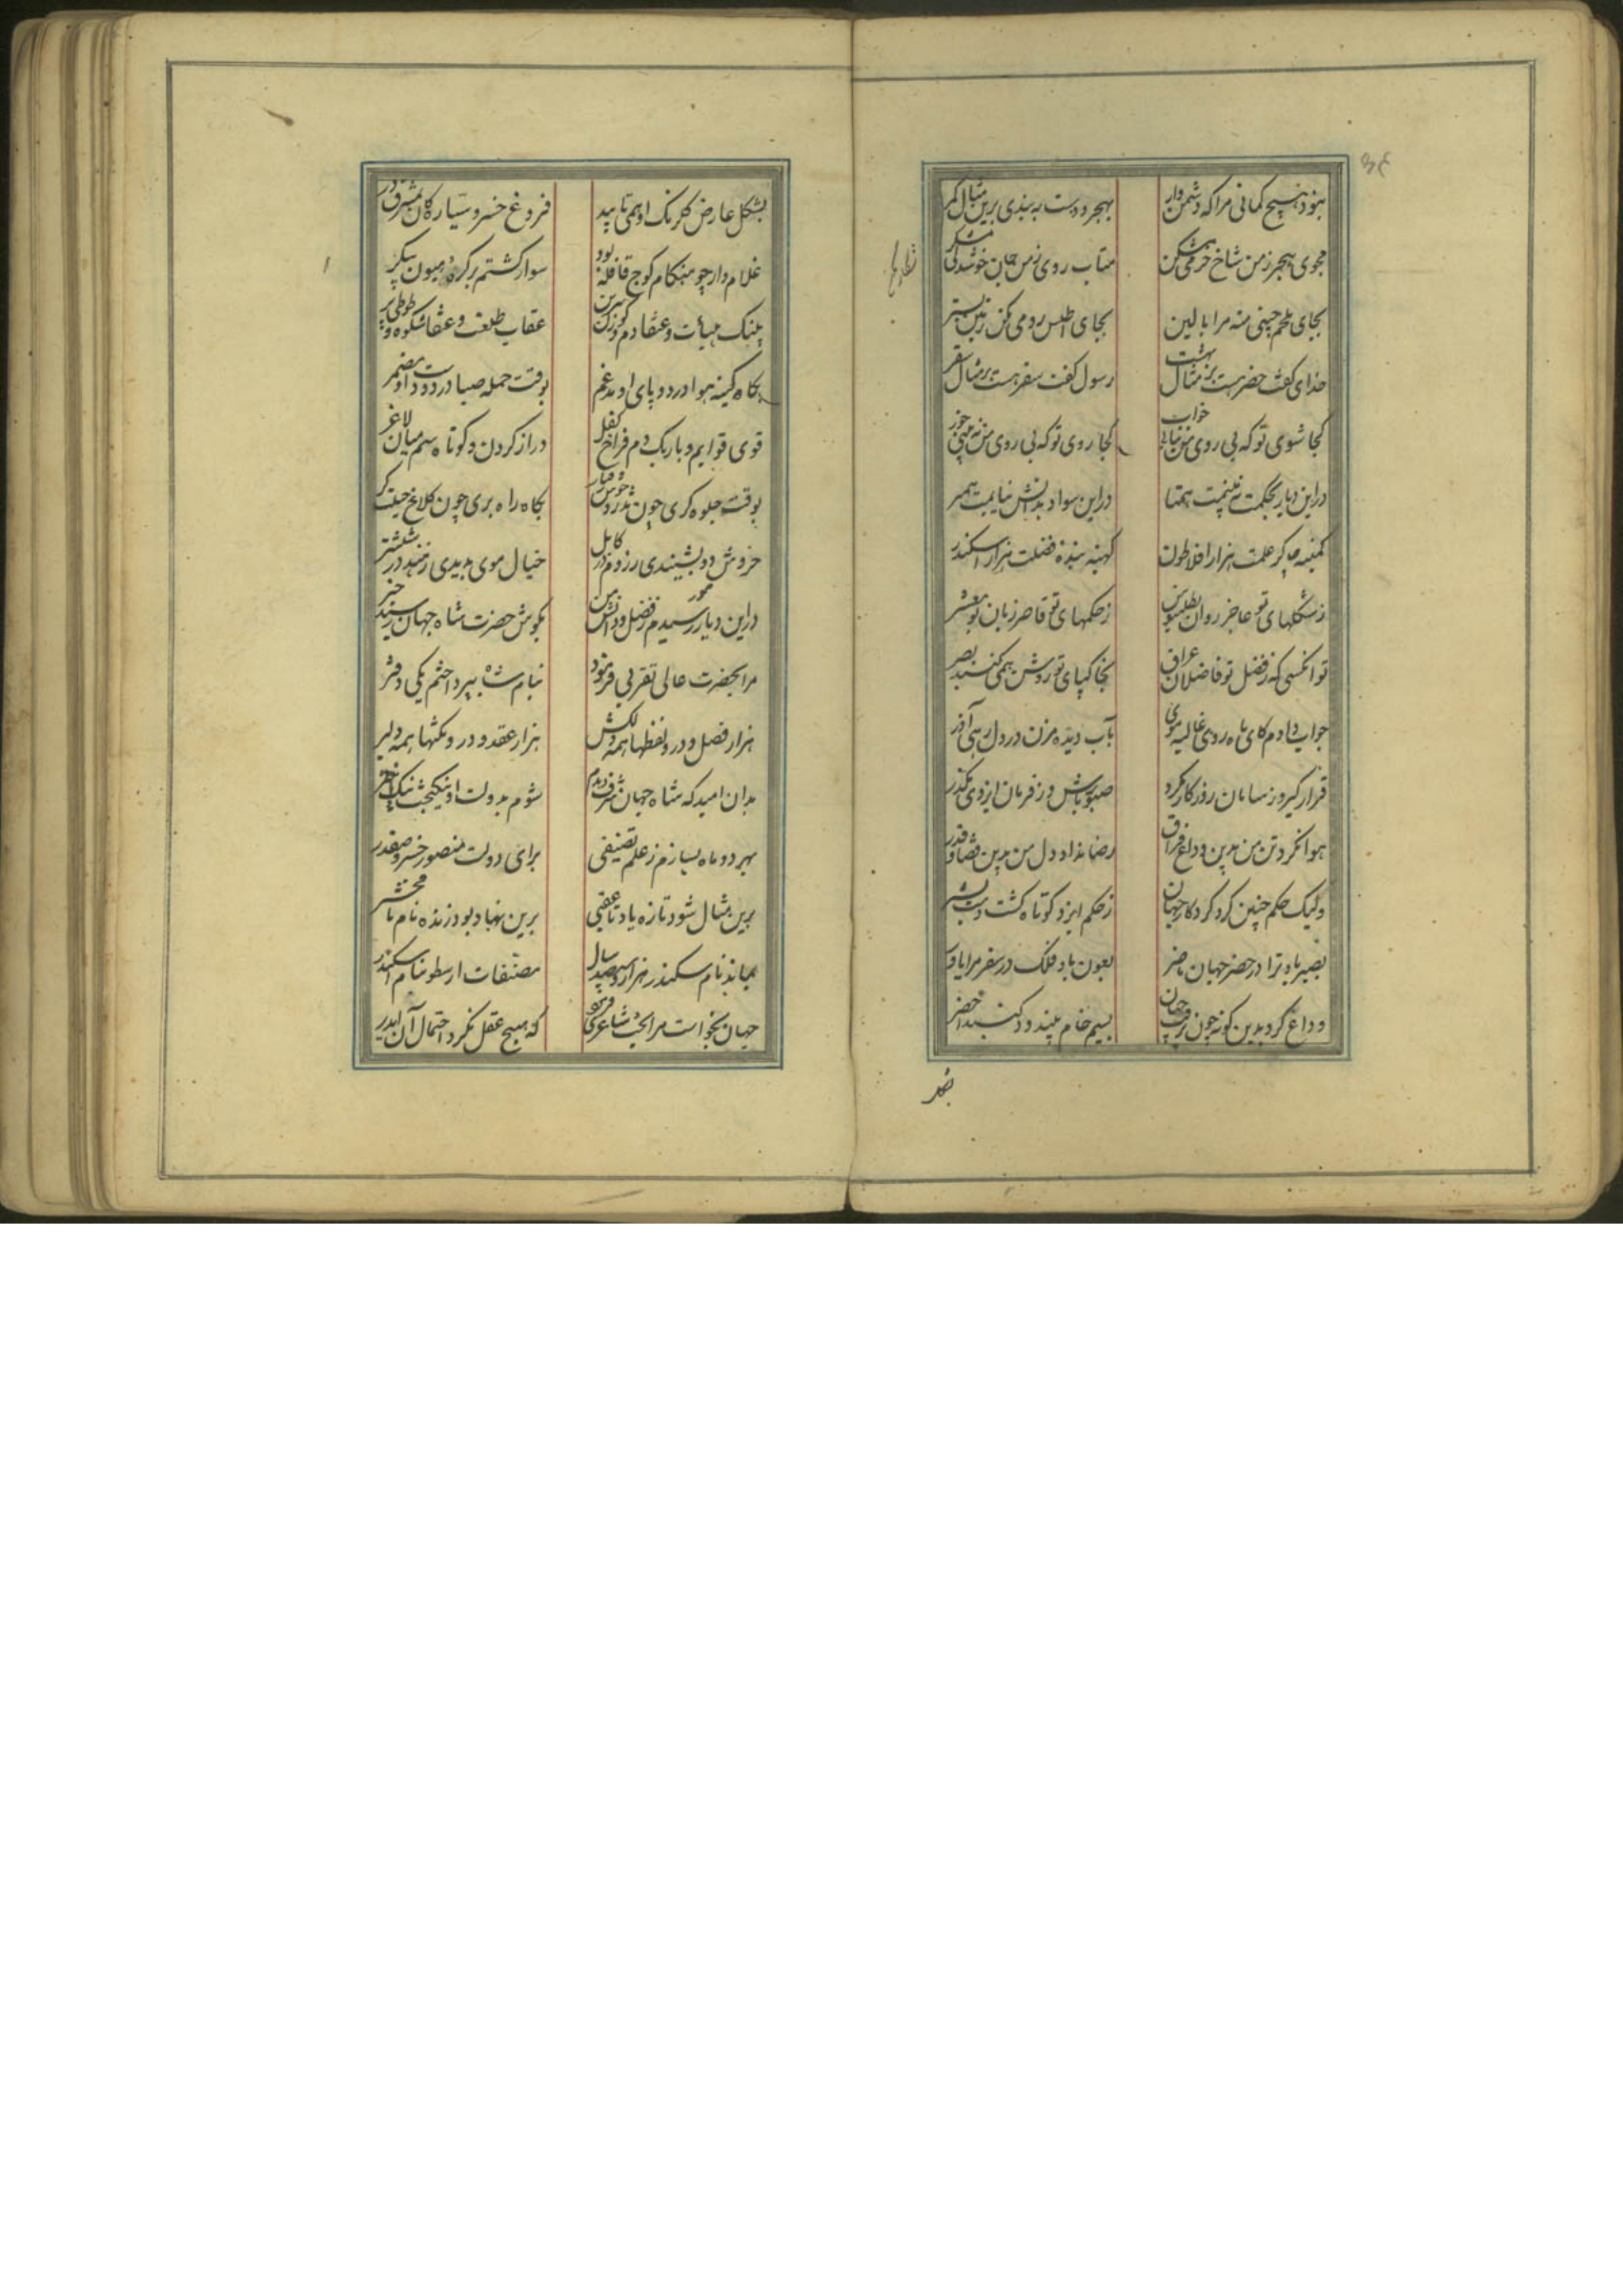 نبود هیچ گمانی مرا که دشمن وار
بهجر دوست به بندی برین مثال کمر
مجوی هجر ز من شاخ خرمی مشکن
متاب روی ز من جان خوشدلی مشکر
بجای ملحم چینی منه مرا بالین
بجای اطلس رومی مکن ز من بستر
خدای گفت حضر هست بر مثال بهشت
رسول گفت سفر هست بر مثال سقر
کجا شوی تو که بی روی من نیابی خواب
کجا روی تو که بی روی من نه بینی خور
در این دیار بحکمت نه بینمت همتا
در این سواد بدانش نیابمت همبر
کمینه چاکر علمت هزار افلاطون
کهینه بنده فضلت هزار اسکندر
ز شکلهای تو عاجز روان بطلمیوس
ز حکمهای تو قاصر زبان بومعشر
تو انکسی که ز فضل تو فاضلان عراق
بخاکپای تو روشن همی کنند بصر
جواب دادم کای ماه روی غالیه موی
بآب دیده مزن در دل رهی آذر
قرار گیر و ز سامان روزگار مگرد
صبور باش و ز فرمان ایزدی مگذر
هوا نکرد تن من بدین وداع فراق
رضا نداد دل من بدین قضا و قدر
ولیک حکم چنین کرد کردگار جهان
ز حکم ایزد کوتاه گشت دست بشر
نصیر باد ترا در حضر جهان ناصر
بعون باد فلک در سفر مرا یاور
وداع کرد بدین گونه چون برفت جهان
بسیم خام بیندود گنبد اخضر
بشکل عارض گلرنگ او همی تابید
فروغ خسرو سیارگان بمشرق در
غلام وار چو هنگام کوچ قافله بود
سوار گشتم بر کره هیون پیکر
پلنگ هیأت و عنقا دم گوزن سرین
عقاب طلعت و عنقا شکوه و طوطی پر
بگاه کینه هوا در دو پای او مدغم
بوقت حمله صبا در دو دست او مضمر
قوی قوایم و باریک دم فراخ کفل
دراز گردن و کوتاه سم میان لاغر
بوقت جلوه گری چون تذرو خوش رفتار
بگاه راه بری چون کلاغ حیلت گر
خروش دو بشنیدی ز روم در کابل
خیال موی بدیدی ز هند در ششتر
در این دیار رسیدم ز فضل و دانش من
بگوش حضرت شاه جهان رسید خبر
مرا بحضرت عالی تقربی فرمود
بنام شاه بپرداختم یکی دفتر
هزار فصل و در و لفظها همه دلکش
هزار عقد و در و نکتها همه دلبر
بدان امید که شاه جهان شرف دهدم
شوم بدولت او نیکبخت نیک اختر
بهر دو ماه بسازم ز علم تصنیفی
برای دولت منصور خسرو صفدر
برین مثال شود تازه یاد تا عقبی
برین نهاد بود زنده نام تا محشر
بماند نام سکندر هزار و سیصد سال
مصنفات ارسطو بنام اسکندر
جهان نخواست مرا بخت شاعری فرمود
که هیچ عقل نکرد احتمال آن ایدر